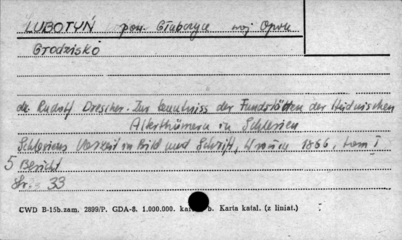 LUBOTYŃ pow. Głubczyce woj Opole
Grodzisko
dr Rudolf Drescher - Zur Kenntniss der Fundstätten der Heidnischen
Alterthümern in Schlesien
Schlesiens Vorzeit in Bild und Schrift, 1866, tom I
5 Bericht
Str. 33
CWD B-15b.zam. 2899/P. GDA-8. 1.000.000. b. Karta katal. (z liniat.)